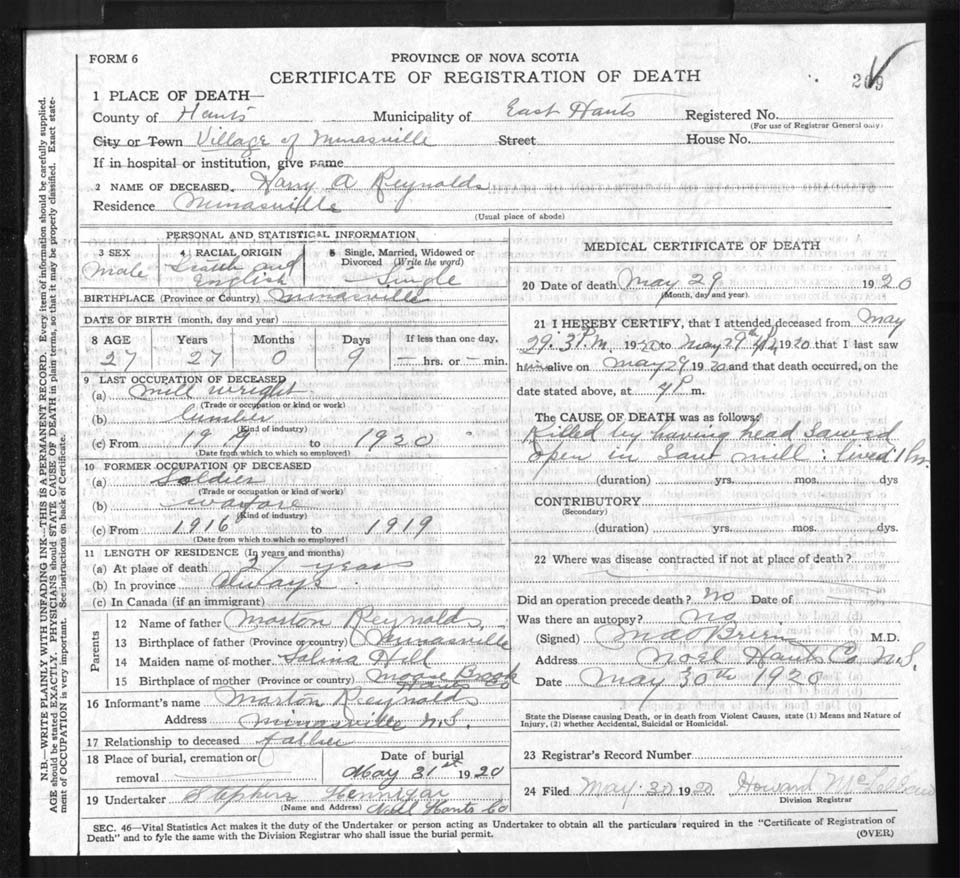 FORM 6
PROVINCE OF NOVA SCOTIA
CERTIFICATE OF REGISTRATION OF DEATH
209
1 PLACE OF DEATH—
County of Hants Municipality of East Hants Registered No.
(For use of Registrar General only)
City or Town Village of Minasville Street House No.
If in hospital or institution, give name
2 NAME OF DECEASED. Harry A Reynolds
Residence Minasville
(Usual place of abode)
PERSONAL AND STATISTICAL INFORMATION
3 SEX 4 RACIAL ORIGIN 5 Single, Married, Widowed or Divorced (Write the word)
Male and English Single
BIRTHPLACE (Province or Country) Minasville
DATE OF BIRTH (month, day and year)
8 AGE Years Months Days If less than one day,
27 27 0 9 — hrs. or — min.
9 LAST OCCUPATION OF DECEASED
(a) Mill wright
(Trade or occupation or kind or work)
(b) lumber
(Kind of industry)
(c) From 1919 to 1920
(Date from which to which so employed)
10 FORMER OCCUPATION OF DECEASED
(a) Soldier
(Trade or occupation or kind of work)
(b) warfare
(Kind of industry)
(c) From 1916 to 1919
(Date from which to which so employed)
11 LENGTH OF RESIDENCE (In years and months)
(a) At place of death 27 years
(b) In province always
(c) In Canada (if an immigrant)
Parents
12 Name of father Morton Reynolds
13 Birthplace of father (Province or country) Minasville
14 Maiden name of mother Salina Hill
15 Birthplace of mother (Province or country) Brook
Hants Co
16 Informant's name Morton Reynolds
Address Minasville N.S.
17 Relationship to deceased father
18 Place of burial, cremation or removal Date of burial
May 31st 1920
19 Undertaker Stephen Hennigar
(Name and Address) Noel Hants Co
MEDICAL CERTIFICATE OF DEATH
20 Date of death May 29 1920
(Month, day and year)
21 I HEREBY CERTIFY, that I attended deceased from May
29. 3 P.M. 1920 to May 29th 4 P.M. 1920 that I last saw
him alive on May 29 1920 and that death occurred, on the
date stated above, at 4 P. m.
The CAUSE OF DEATH was as follows:
Killed by having head sawed
open in saw mill: lived 1 hr.
(duration) yrs. mos. dys
CONTRIBUTORY
(Secondary)
(duration) yrs. mos. dys.
22 Where was disease contracted if not at place of death?
Did an operation precede death? no Date of
Was there an autopsy? no
(Signed) M.D.
Address Noel Hants Co N.S.
Date May 30th 1920
State the Disease causing Death, or in death from Violent Causes, state (1) Means and Nature of
Injury, (2) whether Accidental, Suicidal or Homicidal.
23 Registrar's Record Number
24 Filed May 30 1920 Howard
Division Registrar
SEC. 46—Vital Statistics Act makes it the duty of the Undertaker or person acting as Undertaker to obtain all the particulars required in the "Certificate of Registration of
Death" and to fyle the same with the Division Registrar who shall issue the burial permit.
(OVER)
N.B.—WRITE PLAINLY WITH UNFADING INK—THIS IS A PERMANENT RECORD. Every item of information should be carefully supplied.
AGE should be stated EXACTLY. PHYSICIANS should STATE CAUSE OF DEATH in plain terms, so that it may be properly classified. Exact state-
ment of OCCUPATION is very important. See instructions on back of Certificate.